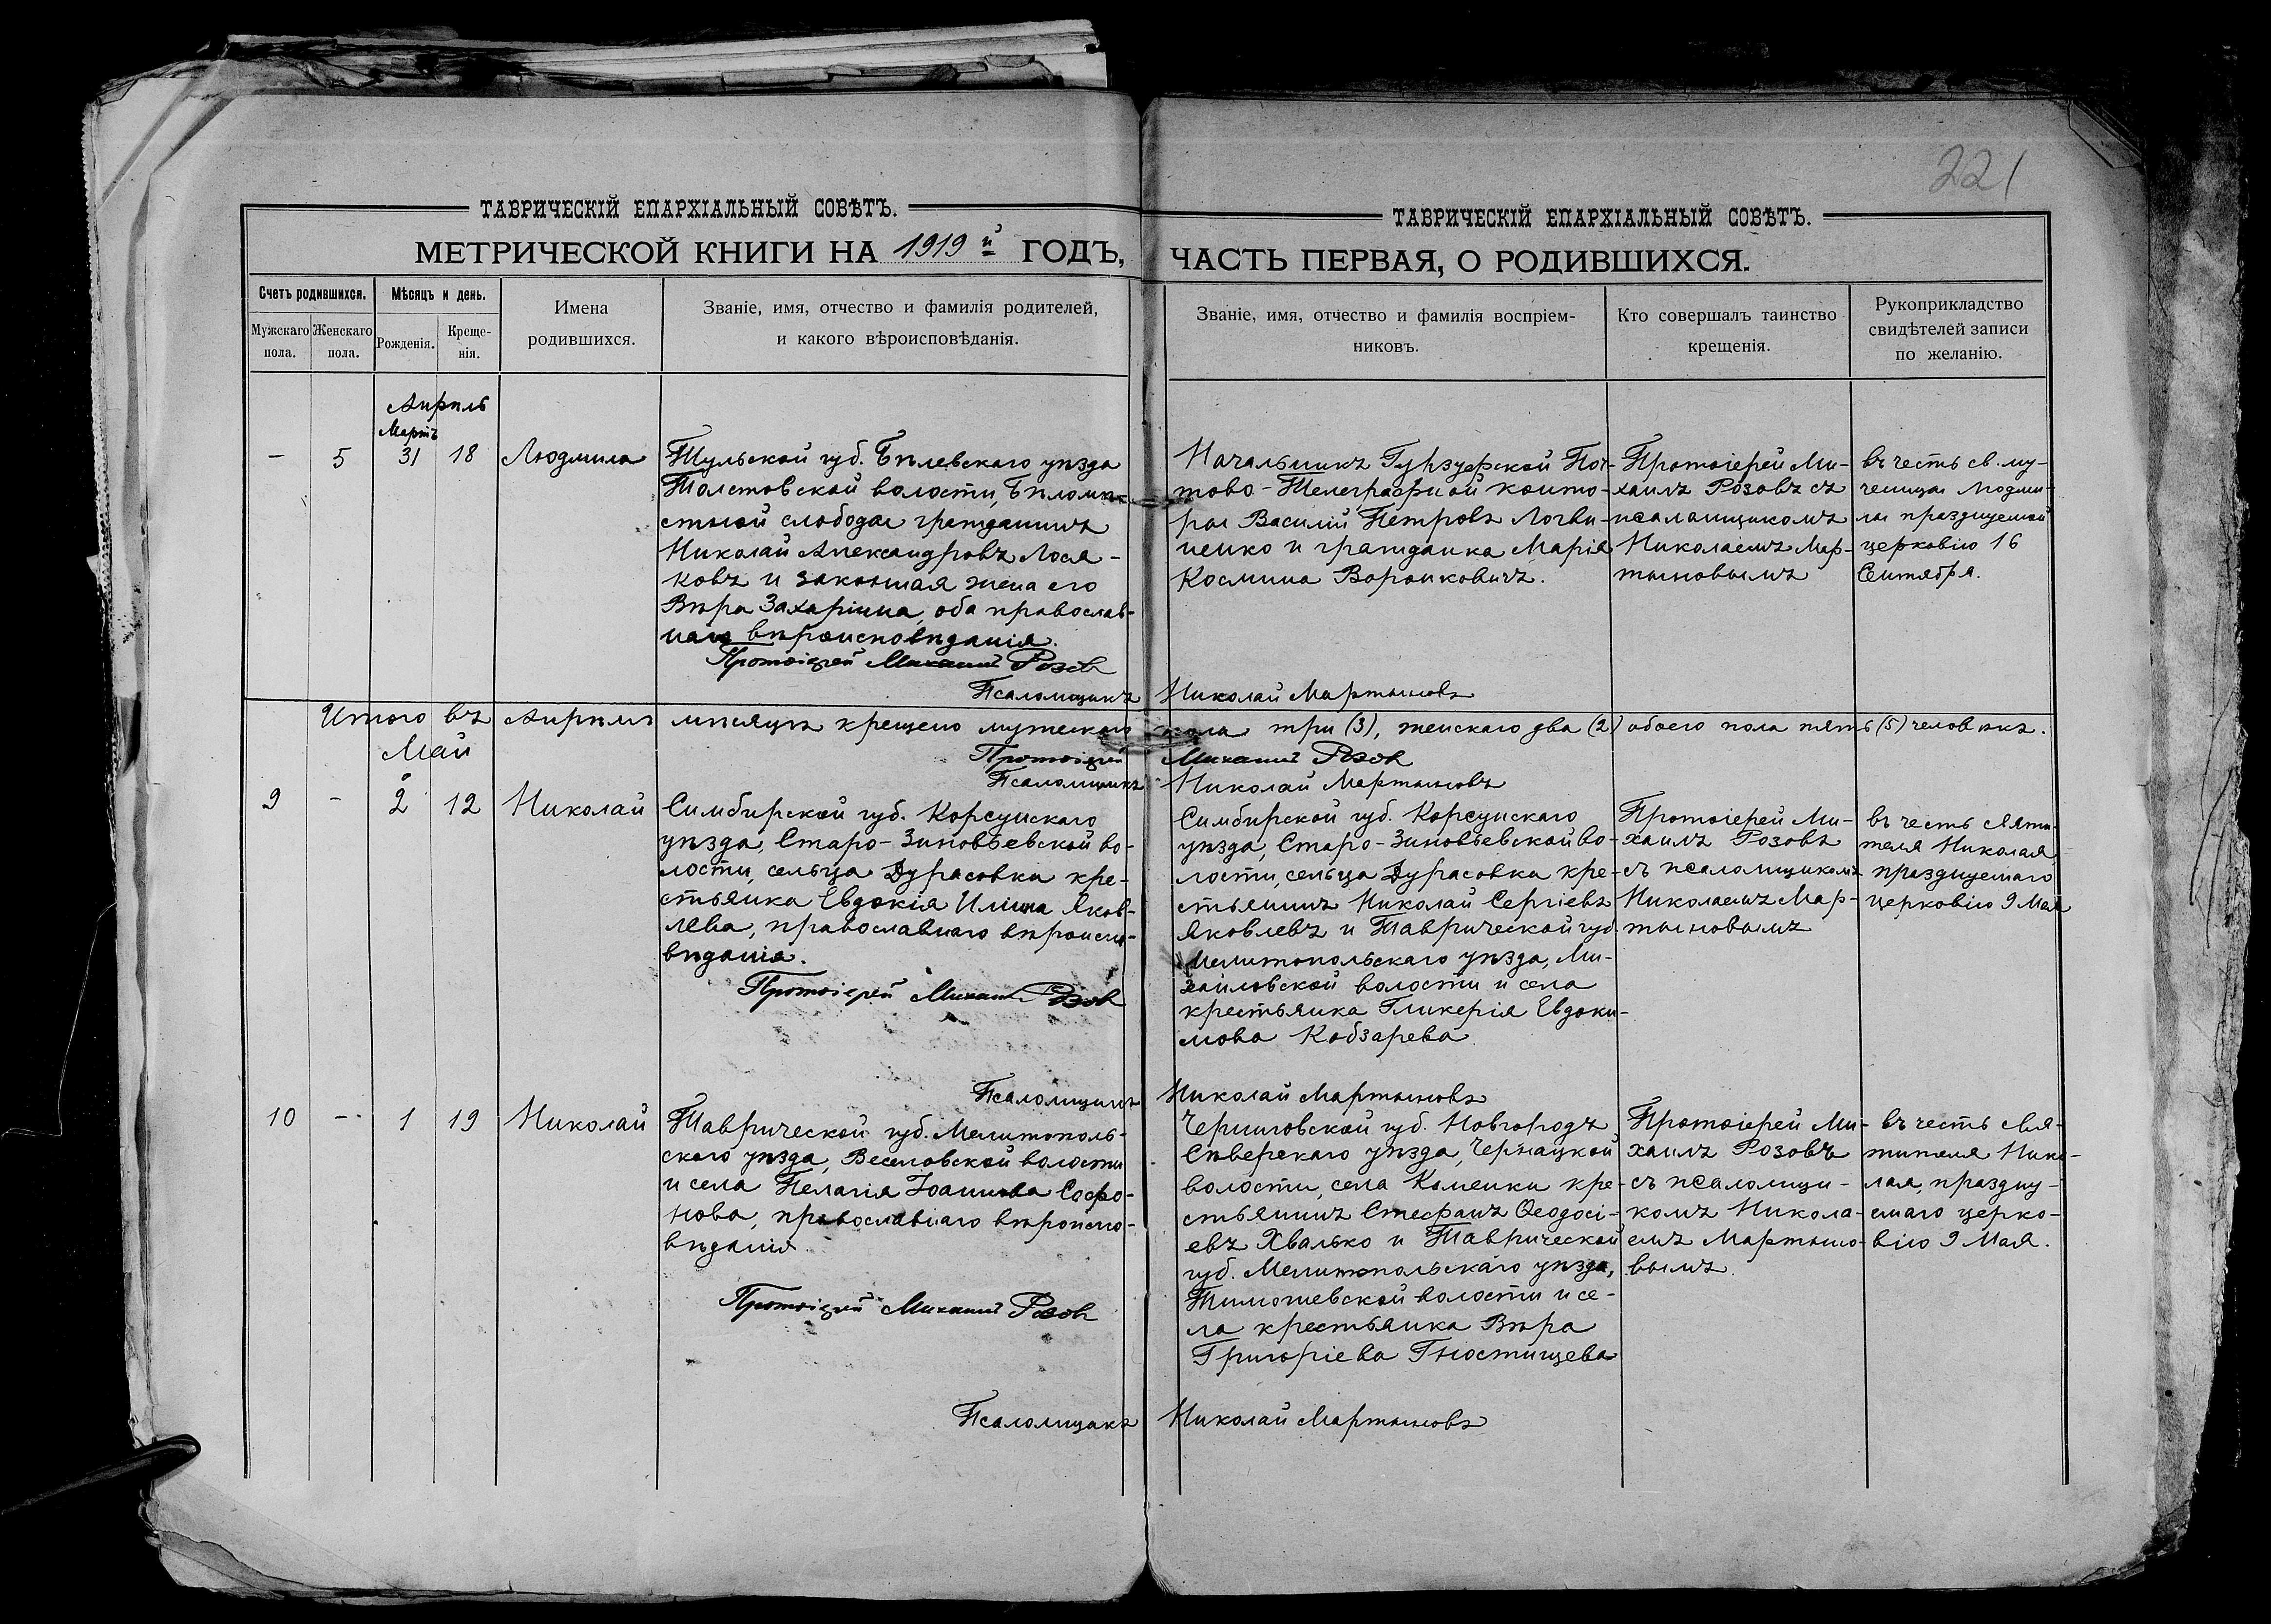 221
ТАВРИЧЕСКІЙ ЕПАРХІАЛЬНЫЙ СОВѢТЪ.
МЕТРИЧЕСКОЙ КНИГИ НА 1919й ГОДЪ,
Счетъ родившихся.
Мужскаго пола.
Женскаго пола.
Мѣсяцъ и день.
Рожденія.
Креще-
нія.
Имена
родившихся.
Званіе, имя, отчество и фамилія родителей,
и какого вѣроисповѣданія.
ТАВРИЧЕСКІЙ ЕПАРХІАЛЬНЫЙ СОВѢТЪ.
ЧАСТЬ ПЕРВАЯ, О РОДИВШИХСЯ.
Званіе, имя, отчество и фамилія воспріем-
никовъ.
Кто совершалъ таинство
крещенія.
Рукоприкладство
свидѣтелей записи
по желанію.
Апрѣль
Мартъ
- 5 31 18 Людмила
Тульской губ. Бѣлевскаго уѣзда
Толстовской волости, Бѣломѣ-
стной слободы гражданинъ
Николай Александровъ Лося-
ковъ и законная жена его
Вѣра Захаріина, оба православ-
наго вѣроисповѣданія.
Протоіерей Михаилъ Розовъ
Начальникъ Гурзуфской Поч-
тово-Телеграфной конто-
ры Василій Петровъ Логви-
ненко и гражданка Марія
Космина Воронковичъ.
Протоіерей Ми-
хаилъ Розовъ съ
псаломщикомъ
Николаемъ Мар-
тыновымъ
въ честь св. му-
ченицы Людми-
лы празднуемой
церковію 16
Сентября.
Псаломщикъ Николай Мартыновъ
Итого въ Апрѣлѣ мѣсяцѣ крещено мужескаго пола три (3), женскаго два (2) обоего пола пять (5) человѣкъ.
Протоіерей Михаилъ Розовъ
Псаломщикъ Николай Мартыновъ
Май
9 - 2 12 Николай
Симбирской губ. Корсунскаго
уѣзда, Старо-Зиновьевской во-
лости, сельца Дурасовки кре-
стьянка Евдокія Ильина Яков-
лева, православнаго вѣроиспо-
вѣданія.
Протоіерей Михаилъ Розовъ
Симбирской губ. Корсунскаго
уѣзда, Старо-Зиновьевской во-
лости, сельца Дурасовки кре-
стьянинъ Николай Сергіевъ
Яковлевъ и Таврической губ.
Мелитопольскаго уѣзда, Ми-
хайловской волости и села
крестьянка Гликерія Евдоки-
мова Кобзарева
Протоіерей Ми-
хаилъ Розовъ
съ псаломщикомъ
Николаемъ Мар-
тыновымъ
въ честь Святи-
теля Николая
празднуемаго
церковію 9 Мая
Псаломщикъ Николай Мартыновъ
10 - 1 19 Николай
Таврической губ. Мелитополь-
скаго уѣзда, Веселовской волости
и села Пелагія Іоаннова Софро-
нова, православнаго вѣроиспо-
вѣданія
Протоіерей Михаилъ Розовъ
Черниговской губ. Новгородъ
Сѣверскаго уѣзда, Чернацкой
волости, села Каменки кре-
стьянинъ Стефанъ Ѳеодосі-
евъ Хвалько и Таврической
губ. Мелитопольскаго уѣзда,
Тимошевской волости и се-
ла крестьянка Вѣра
Григоріева Гностищева
Протоіерей Ми-
хаилъ Розовъ
съ псаломщи-
комъ Никола-
емъ Мартыно-
вымъ
въ честь Свя-
тителя Нико-
лая, праздну-
емаго церко-
вію 9 Мая.
Псаломщикъ Николай Мартыновъ